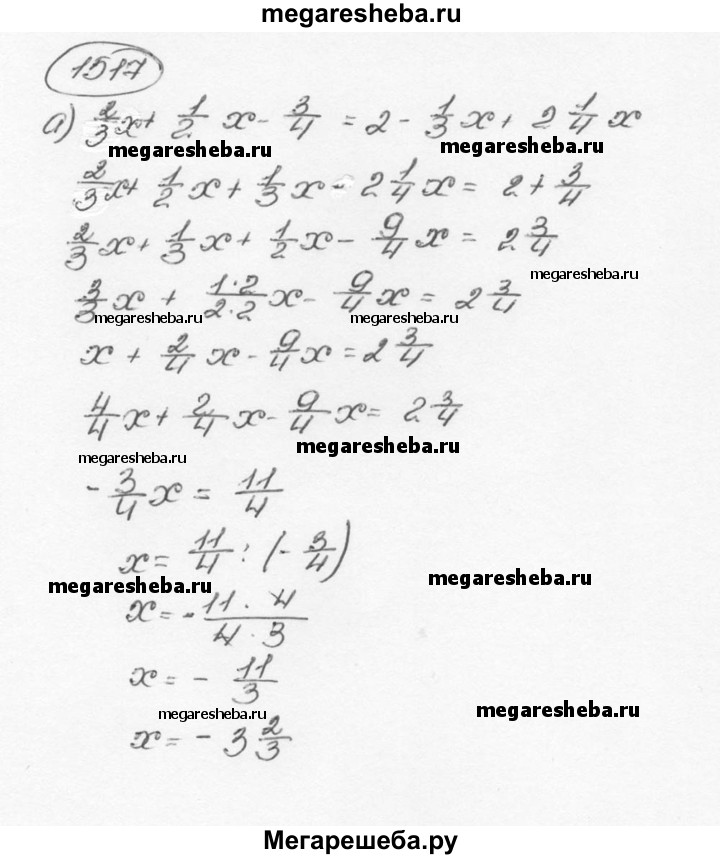 megaresheba.ru
1517
а) 2/3 x + 1/2 x - 3/4 = 2 - 1/3 x + 2 1/4 x
megaresheba.ru megaresheba.ru
2/3 x + 1/2 x + 1/3 x - 2 1/4 x = 2 + 3/4
2/3 x + 1/3 x + 1/2 x - 9/4 x = 2 3/4
megaresheba.ru
3/3 x + 1·2/2·2 x - 9/4 x = 2 3/4
megaresheba.ru megaresheba.ru
x + 2/4 x - 9/4 x = 2 3/4
4/4 x + 2/4 x - 9/4 x = 2 3/4
megaresheba.ru
megaresheba.ru
- 3/4 x = 11/4
x = 11/4 : (- 3/4)
megaresheba.ru
megaresheba.ru
x = - 11 · 4/4 · 3
x = - 11/3
megaresheba.ru
megaresheba.ru
x = - 3 2/3
Мегарешеба.ру